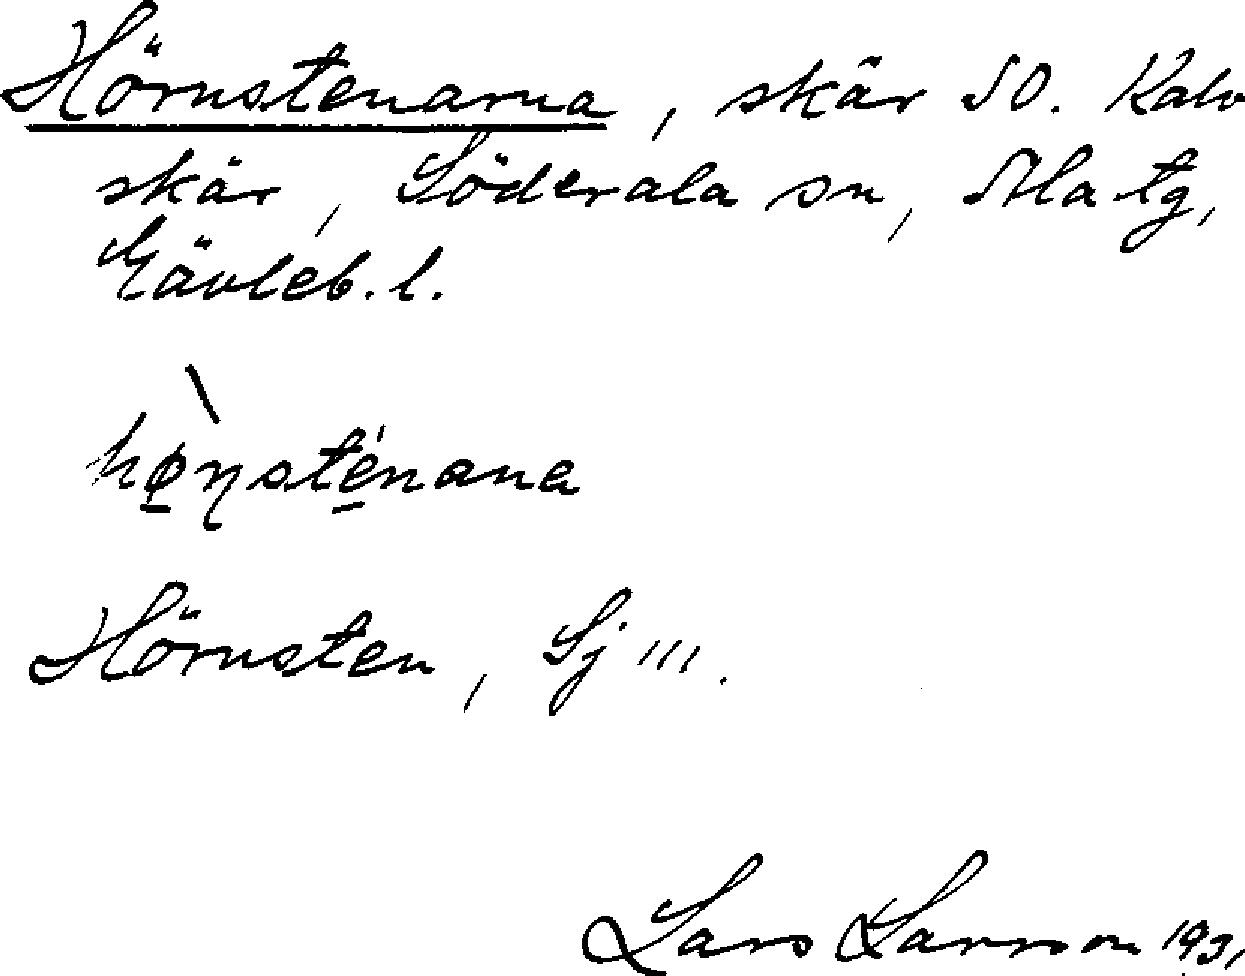 Hörnstenarna, skär SO. Kalv
skär, Söderala sn, Ala tg,
Gävleb. l.
hø̠ɳsté̠nana
Hörnsten, Sj III.
Lars Larsson 1931